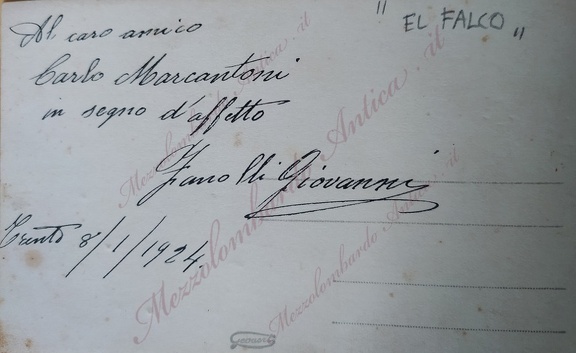 " EL FALCO "
Al caro amico
Carlo Marcantoni
in segno d'affetto
Zanolli Giovanni
Trento 8/1/1924.
Mezzolombardo Antica.it
Mezzolombardo Antica.it
Mezzolombardo Antica.it